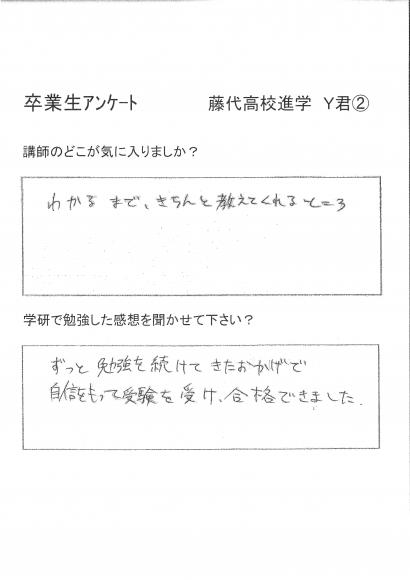 卒業生アンケート　　藤代高校進学　Y君②
講師のどこが気に入りましたか？
わかるまで、きちんと教えてくれるところ
学研で勉強した感想を聞かせて下さい？
ずっと勉強を続けてきたおかげで
自信をもって受験を受け、合格できました.